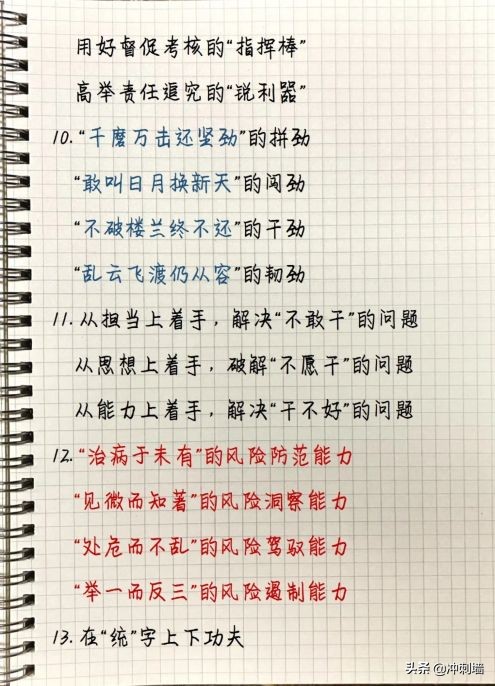 用好督促考核的“指挥棒”
高举责任追究的“锐利器”
10.“千磨万击还坚劲”的拼劲
“敢叫日月换新天”的闯劲
“不破楼兰终不还”的干劲
“乱云飞渡仍从容”的韧劲
11.从担当上着手，解决“不敢干”的问题
从思想上着手，破解“不愿干”的问题
从能力上着手，解决“干不好”的问题
12.“治病于未有”的风险防范能力
“见微而知著”的风险洞察能力
“处危而不乱”的风险驾驭能力
“举一而反三”的风险遏制能力
13.在“统”字上下功夫
头条 @冲刺墙